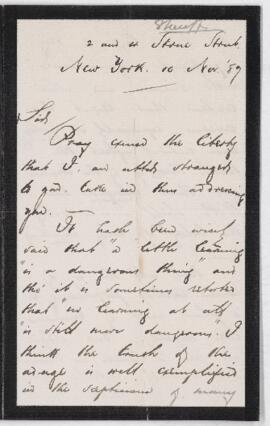 2 and 4 Stone Street.
New York. 10 Nov. '89
Sir,
Pray excuse the liberty
that I, an utter stranger
to you take in thus addressing
you. —
It hath been wisely
said that "a little learning
"is a dangerous thing" and
tho' it is sometimes retorted
that "no learning at all
"is still more dangerous". I
think the truth of the
adage is well exemplified
in the scepticism of many